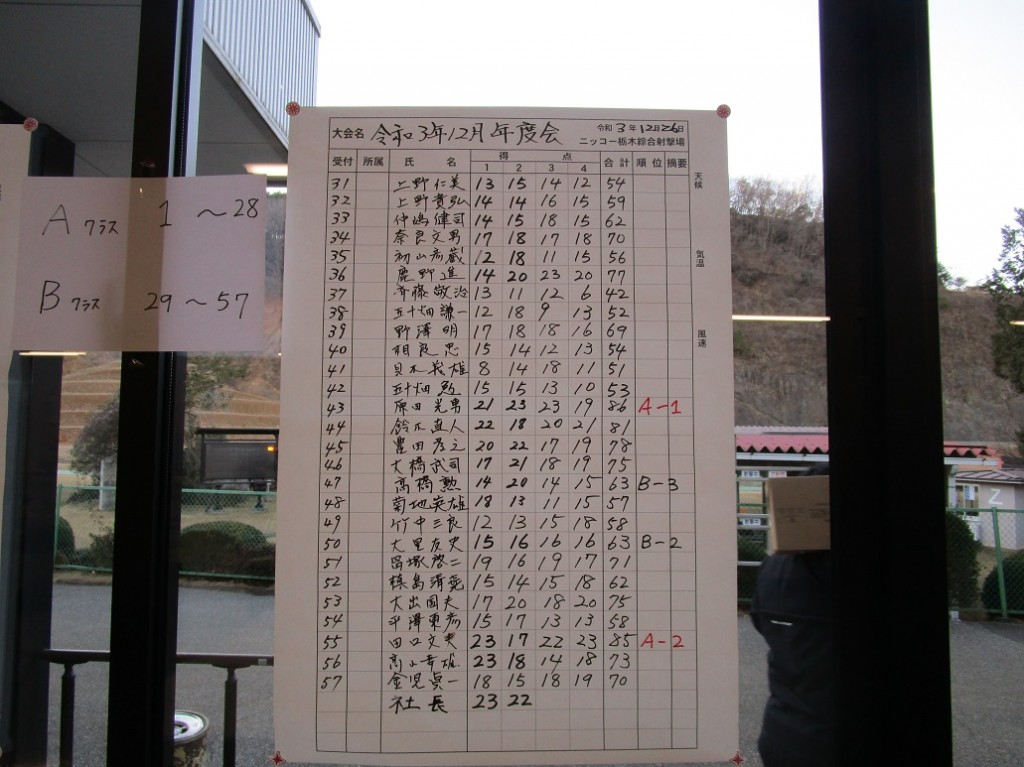 A クラス 1 ～28
B クラス 29～57
大会名 令和3年12月年度会 令和 3 年 12月26日
ニッコー栃木綜合射撃場
受付 所属 氏 名 得 点 合計 順位 摘要
1 2 3 4
天候
気温
風速
31 上野仁美 13 15 14 12 54
32 上野貴弘 14 14 16 15 59
33 仲嶋健司 14 15 18 15 62
34 奈良文男 17 18 17 18 70
35 初山彦蔵 12 18 11 15 56
36 鹿野進 14 20 23 20 77
37 斉藤敬治 13 11 12 6 42
38 五十畑謙一 12 18 9 13 52
39 野澤明 17 18 18 16 69
40 相良忠 15 14 12 13 54
41 貝木義雄 8 14 18 11 51
42 五十畑勲 15 15 13 10 53
43 原田光男 21 23 23 19 86 A-1
44 鈴木直人 22 18 20 21 81
45 豊田 20 22 17 19 78
46 大橋武司 17 21 18 19 75
47 高橋勲 14 20 14 15 63 B-3
48 菊地英雄 18 13 11 15 57
49 竹中三良 12 13 15 18 58
50 大里友史 15 16 16 16 63 B-2
51 啓二 19 16 19 17 71
52 15 14 15 18 62
53 大出国夫 17 20 18 20 75
54 平澤東彦 15 17 13 13 58
55 田口文夫 23 17 22 23 85 A-2
56 高山幸雄 23 18 14 18 73
57 金児眞一 18 15 18 19 70
社長 23 22
Z